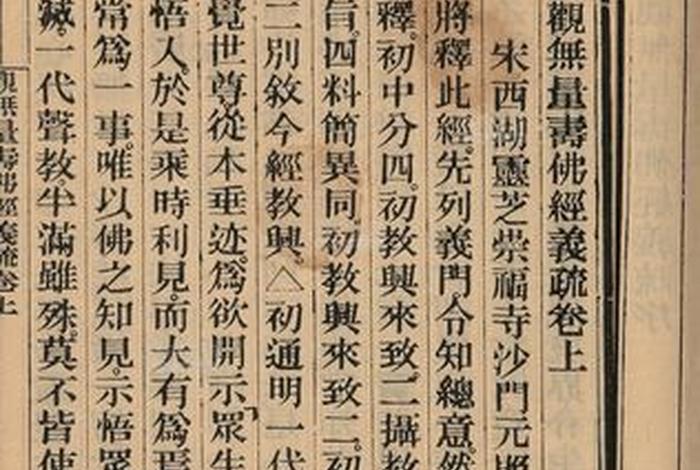 觀無量壽佛經義疏卷上
宋西湖靈芝崇福寺沙門元照
將釋此經。先列義門。令知總意。然
釋。初中分四。初教興來致。二攝教
旨。四料簡異同。初教興來致二。初
二別敘今經教興。△初通明一代
覺世尊。從本垂迹。為欲開示眾生
悟入。於是乘時利見。而大有為焉
常為一事。唯以佛之知見。示悟眾
滅。一代聲教。半滿雖殊。莫不皆使
觀無量壽佛經義疏卷上